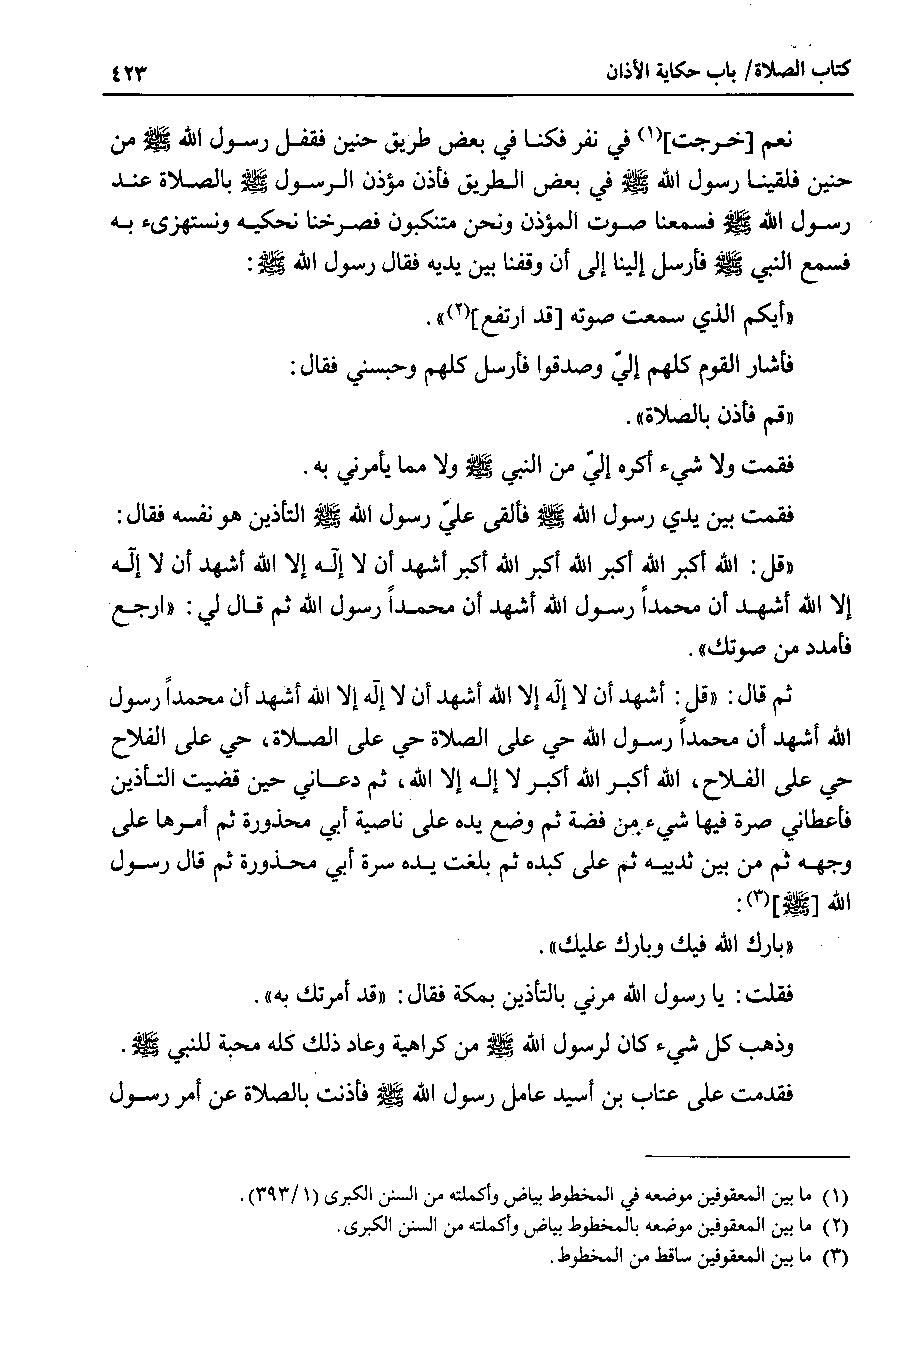 كتاب الصلاة/ باب حكاية الأذان ٤٢٣
نعم [خرجت]⁽¹⁾ في نفر فكنا في بعض طريق حنين فقفل رسول الله ﷺ من
حنين فلقينا رسول الله ﷺ في بعض الطريق فأذن مؤذن الرسول ﷺ بالصلاة عند
رسول الله ﷺ فسمعنا صوت المؤذن ونحن متنكبون فصرخنا نحكيه ونستهزىء به
فسمع النبي ﷺ فأرسل إلينا إلى أن وقفنا بين يديه فقال رسول الله ﷺ:
«أيكم الذي سمعت صوته [قد ارتفع]⁽²⁾».
فأشار القوم كلهم إليّ وصدقوا فأرسل كلهم وحبسني فقال:
«قم فأذن بالصلاة».
فقمت ولا شيء أكره إليّ من النبي ﷺ ولا مما يأمرني به.
فقمت بين يدي رسول الله ﷺ فألقى عليّ رسول الله ﷺ التأذين هو نفسه فقال:
«قل: الله أكبر الله أكبر الله أكبر الله أكبر أشهد أن لا إلٓه إلا الله أشهد أن لا إلٓه
إلا الله أشهد أن محمداً رسول الله أشهد أن محمداً رسول الله ثم قال لي: «ارجع
فأمدد من صوتك».
ثم قال: «قل: أشهد أن لا إلٓه إلا الله أشهد أن لا إلٓه إلا الله أشهد أن محمداً رسول
الله أشهد أن محمداً رسول الله حي على الصلاة حي على الصلاة، حي على الفلاح
حي على الفلاح، الله أكبر الله أكبر لا إله إلا الله، ثم دعاني حين قضيت التأذين
فأعطاني صرة فيها شيء من فضة ثم وضع يده على ناصية أبي محذورة ثم أمرها على
وجهه ثم من بين ثدييه ثم على كبده ثم بلغت يده سرة أبي محذورة ثم قال رسول
الله [ﷺ]⁽³⁾:
«بارك الله فيك وبارك عليك».
فقلت: يا رسول الله مرني بالتأذين بمكة فقال: «قد أمرتك به».
وذهب كل شيء كان لرسول الله ﷺ من كراهية وعاد ذلك كله محبة للنبي ﷺ.
فقدمت على عتاب بن أسيد عامل رسول الله ﷺ فأذنت بالصلاة عن أمر رسول
(١) ما بين المعقوفين موضعه في المخطوط بياض وأكملته من السنن الكبرى (١/ ٣٩٣).
(٢) ما بين المعقوفين موضعه بالمخطوط بياض وأكملته من السنن الكبرى.
(٣) ما بين المعقوفين ساقط من المخطوط.